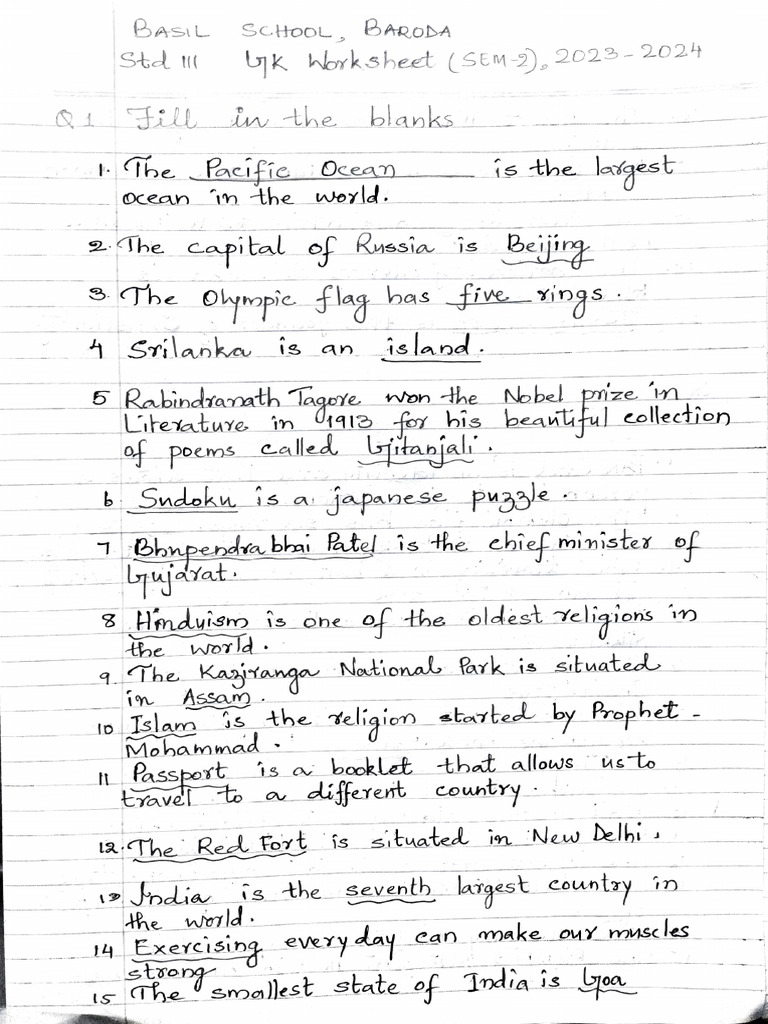 BASIL SCHOOL, BARODA
Std III GK Worksheet (SEM-2), 2023-2024
Q1 Fill in the blanks
1. The Pacific Ocean is the largest
ocean in the world.
2. The capital of Russia is Beijing
3. The Olympic flag has five rings.
4 Srilanka is an island.
5 Rabindranath Tagore won the Nobel prize in
Literature in 1913 for his beautiful collection
of poems called Gitanjali.
6 Sudoku is a japanese puzzle.
7 Bhupendrabhai Patel is the chief minister of
Gujarat.
8 Hinduism is one of the oldest religions in
the world.
9. The Kaziranga National Park is situated
in Assam.
10 Islam is the religion started by Prophet -
Mohammad.
11 Passport is a booklet that allows us to
travel to a different country.
12. The Red Fort is situated in New Delhi.
13 India is the seventh largest country in
the world.
14 Exercising everyday can make our muscles
strong
15 The smallest state of India is Goa